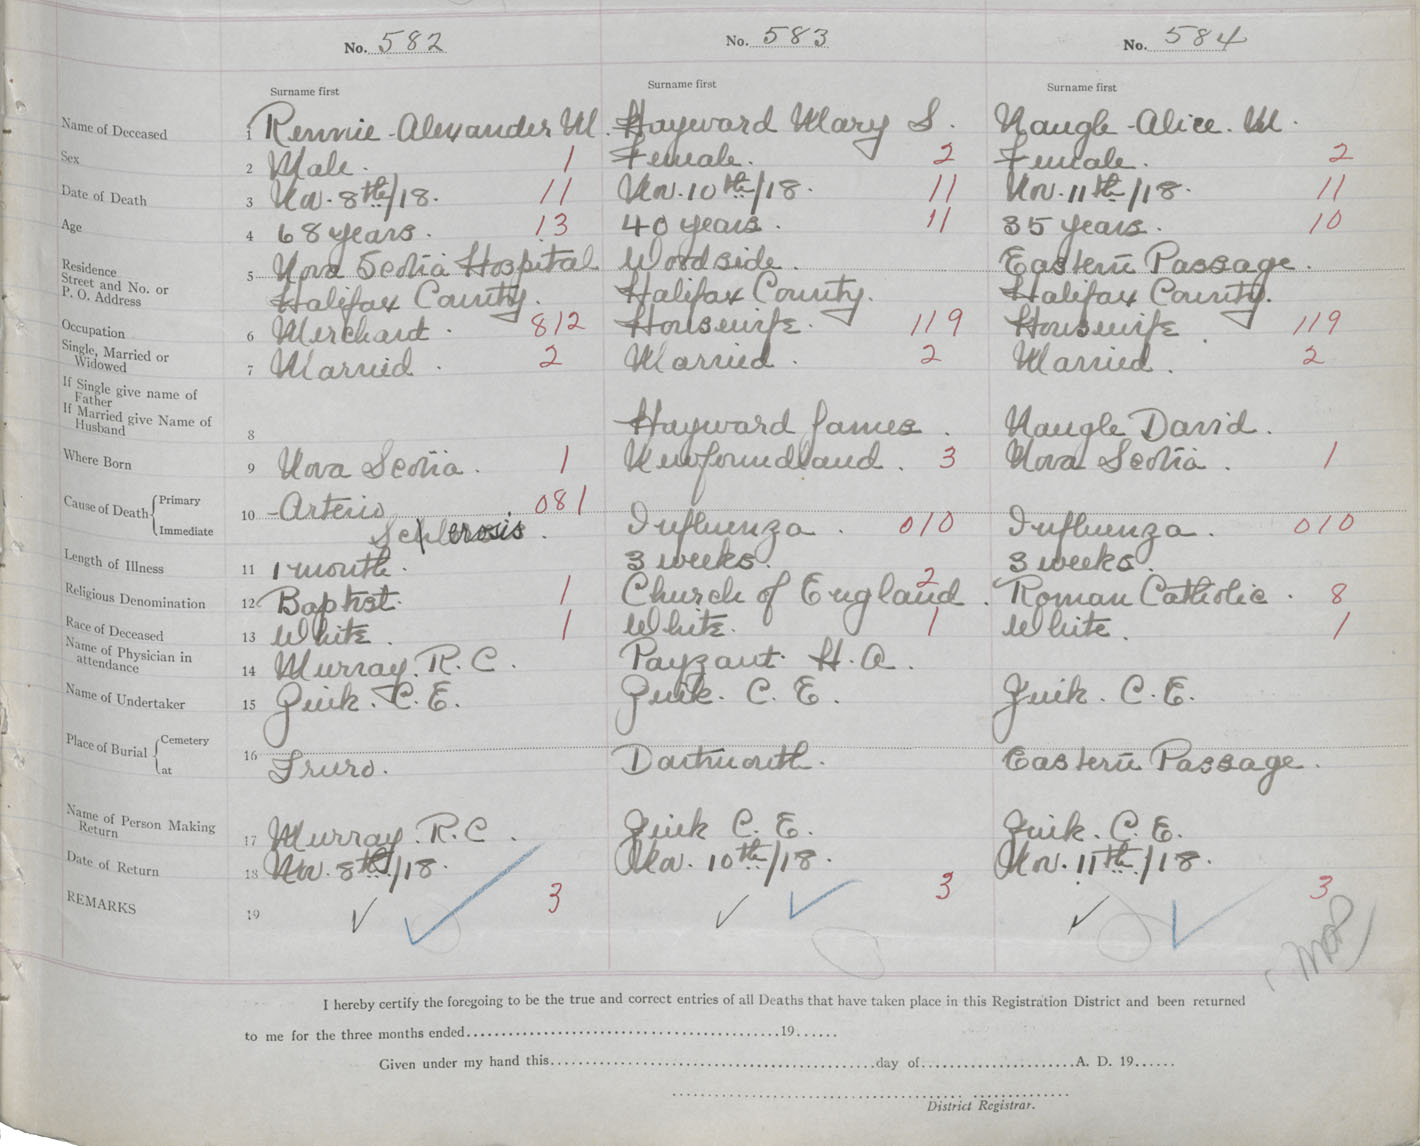 No. 582 No. 583 No. 584
Surname first Surname first Surname first
Name of Deceased 1 Rennie Alexander M. Hayward Mary S. Naugle Alice. M.
Sex 2 Male. 1 Female. 2 Female. 2
Date of Death 3 Nov. 8th/18. 11 Nov. 10th/18. 11 Nov. 11th/18. 11
Age 4 68 years. 13 40 years. 11 35 years. 10
Residence Street and No. or P. O. Address 5 Nova Scotia Hospital Woodside. Eastern Passage.
Halifax County. Halifax County. Halifax County.
Occupation 6 Merchant. 812 Housewife. 119 Housewife. 119
Single, Married or Widowed 7 Married. 2 Married. 2 Married. 2
If Single give name of Father
If Married give Name of Husband 8 Hayward James. Naugle David.
Where Born 9 Nova Scotia. 1 Newfoundland. 3 Nova Scotia. 1
Cause of Death Primary Immediate 10 Arterio 081
Sclerosis. Influenza. 010 Influenza. 010
Length of Illness 11 1 month. 3 weeks. 3 weeks.
Religious Denomination 12 Baptist. 1 Church of England. 2 Roman Catholic. 8
Race of Deceased 13 White. 1 White. 1 White. 1
Name of Physician in attendance 14 Murray. R. C. Payzant H. A.
Name of Undertaker 15 Zuik. C. E. Zuik. C. E. Zuik. C. E.
Place of Burial Cemetery at 16 Truro. Dartmouth. Eastern Passage.
Name of Person Making Return 17 Murray. R. C. Zuik C. E. Zuik. C. E.
Date of Return 18 Nov. 8th/18. Nov. 10th/18. Nov. 11th/18.
REMARKS 19 3 3 3
I hereby certify the foregoing to be the true and correct entries of all Deaths that have taken place in this Registration District and been returned
to me for the three months ended 19
Given under my hand this day of A. D. 19
District Registrar.